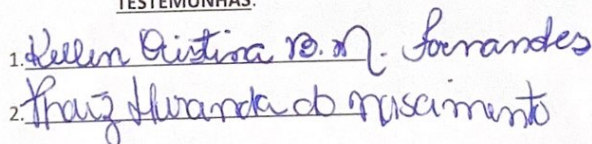 TESTEMUNHAS:
1. Kellen Cristina B. M. Fernandes
2. Thaiz Miranda do nascimento